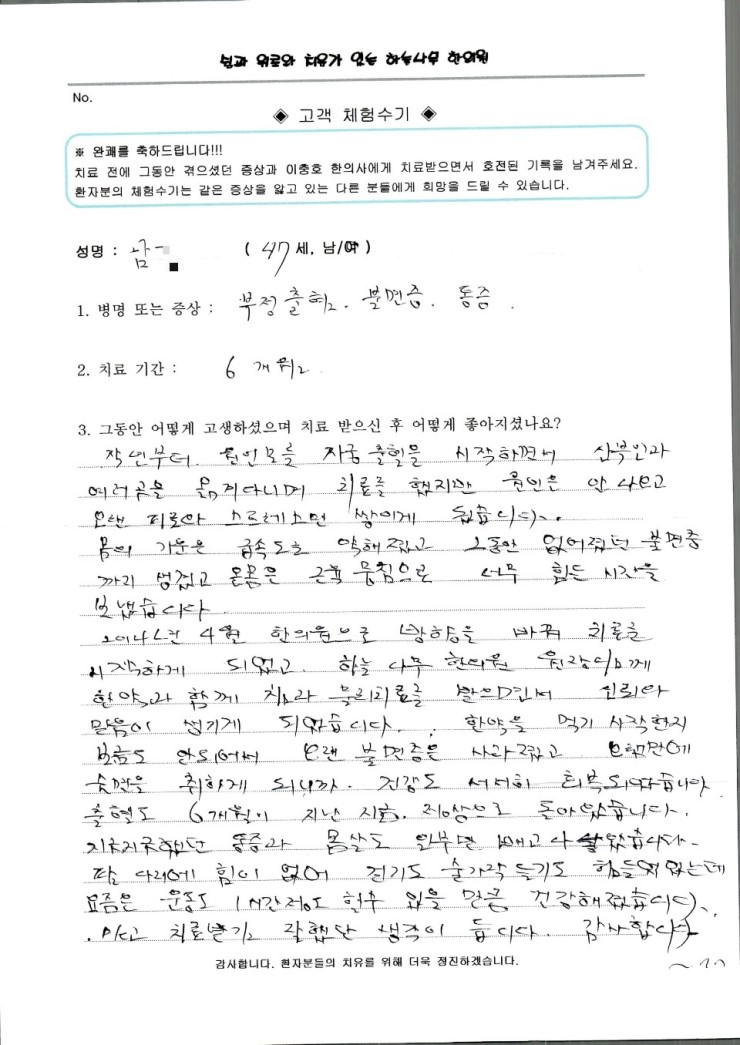 쉼과 위로와 치유가 있는 하늘나무 한의원
No.
◈ 고객 체험수기 ◈
※ 완쾌를 축하드립니다!!!
치료 전에 그동안 겪으셨던 증상과 이충호 한의사에게 치료받으면서 호전된 기록을 남겨주세요.
환자분의 체험수기는 같은 증상을 앓고 있는 다른 분들에게 희망을 드릴 수 있습니다.
성명 : 남 ( 47 세, 남/여 )
1. 병명 또는 증상 : 부정출혈. 불면증. 통증.
2. 치료 기간 : 6개월
3. 그동안 어떻게 고생하셨으며 치료 받으신 후 어떻게 좋아지셨나요?
작년부터 원인모를 자궁출혈을 시작하면서 산부인과
여러곳을 옮겨다니며 치료를 했지만 원인은 안나오고
오랜 피로와 스트레스만 쌓이게 됬습니다.
몸의 기운은 급속도로 약해졌고 그동안 없어졌던 불면증
까지 생겼고 온몸은 근육 뭉침으로 너무 힘든 시간을
보냈습니다.
4월 한의원으로 방향을 바꿔 치료를
시작하게 되었고. 하늘나무 한의원 원장님께
한약과 함께 침과 물리치료를 받으면서 신뢰와
믿음이 생기게 되었습니다. 한약을 먹기 시작한지
보름도 안되어서 오랜 불면증은 사라졌고 오랜만에
숙면을 취하게 되니까. 건강도 서서히 회복되었습니다
출혈도 6개월이 지난 지금. 정상으로 돌아왔습니다.
통증과 몸살도 일부면 빼고 다 나았습니다.
팔 다리에 힘이 없어 걷기도 숟가락 들기도 힘들었었는데
요즘은 운동도 1시간정도 할수 있을 만큼 건강해졌습니다.
믿고 치료받기 잘했단 생각이 듭니다. 감사합니다
감사합니다. 환자분들의 치유를 위해 더욱 정진하겠습니다.